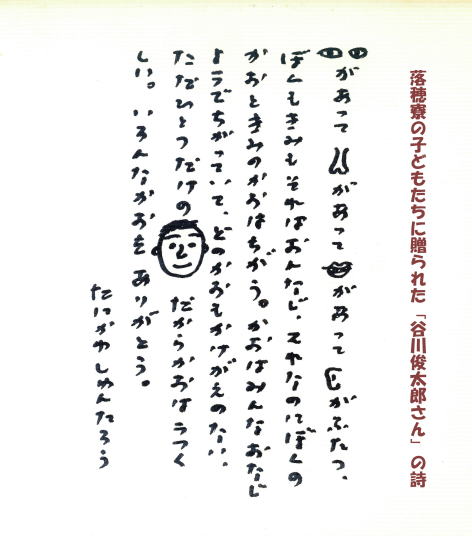 落穂寮の子どもたちに贈られた「谷川俊太郎さん」の詩
があって があって があって がふたつ、
ぼくもきみもそれはおんなじ、それなのにぼくの
かおときみのかおはちがう。かおはみんなおなじ
ようでちがっていて、どのかおもかけがえのない、
ただひとつだけの だからかおはうつく
しい。いろんなかおを ありがとう。
たにかわしゅんたろう